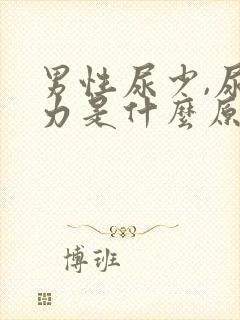 男性尿少,尿
力是什麼原
博班